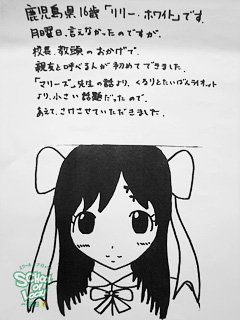 鹿児島県16歳「リリー・ホワイト」です。
月曜日、言えなかったのですが、
校長、教頭のおかげで、
親友と呼べる人が初めてできました。
「マリーズ」先生の話より、くるりとたいばんライオット
より、小さい話題だったので、
あえて、さけさせていただきました。
SCHOOL OF LOCK!